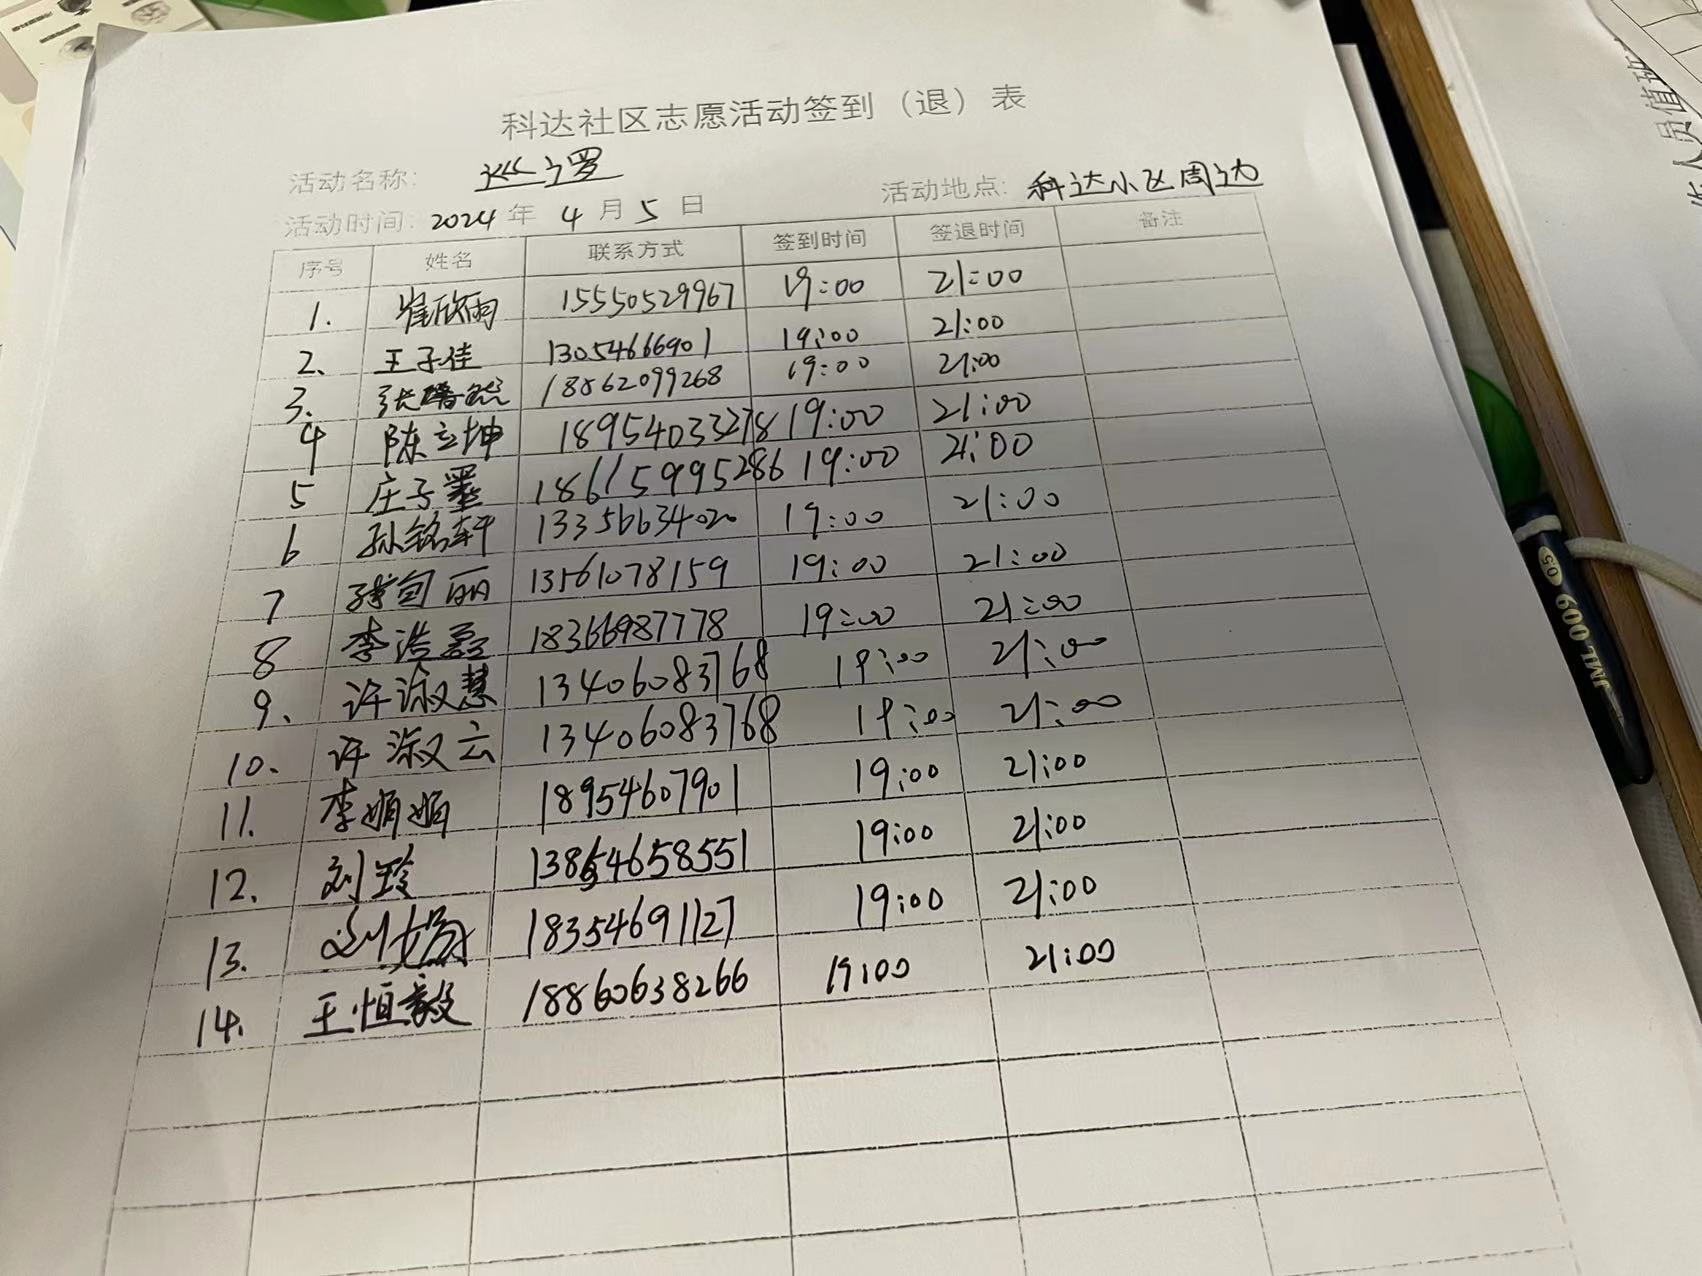 科达社区志愿活动签到（退）表
活动名称: 巡逻
活动时间: 2024 年 4 月 5 日 活动地点: 科达小区周边
序号 姓名 联系方式 签到时间 签退时间 备注
1. 崔欣雨 15550529967 19:00 21:00
2、 王子佳 13054666901 19:00 21:00
3、 张 18862099268 19:00 21:00
4 陈立坤 18954033278 19:00 21:00
5 庄子墨 186615995286 19:00 21:00
6 孙铭轩 13356634020 19:00 21:00
7 丽 13561078159 19:00 21:00
8 李浩磊 18366987778 19:00 21:00
9、 许淑慧 13406083768 19:00 21:00
10、 许淑云 13406083768 19:00 21:00
11. 李娟娟 18954607901 19:00 21:00
12. 刘玲 13854658551 19:00 21:00
13. 刘 18354691127 19:00 21:00
14. 王恒毅 18860638266 19:00 21:00
人员值班
JML 009
0.5